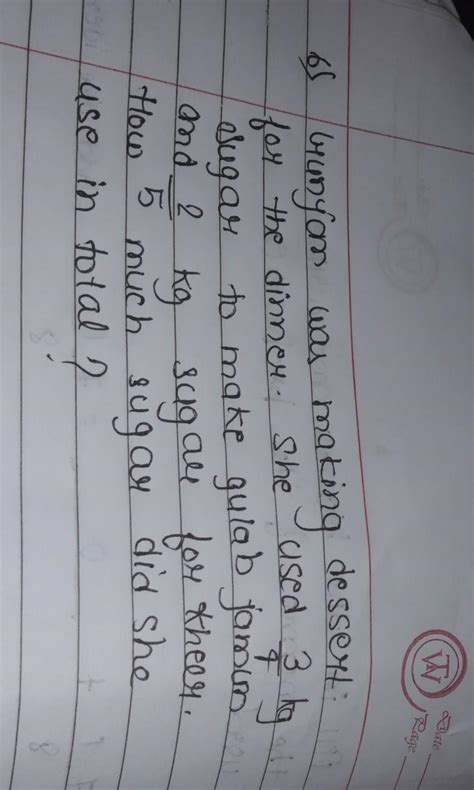 Date
Page
6) Gunjan was making dessert
for the dinner. She used 3/4 kg
sugar to make gulab jamun
and 2/5 kg sugar for kheer.
How much sugar did she
use in total?